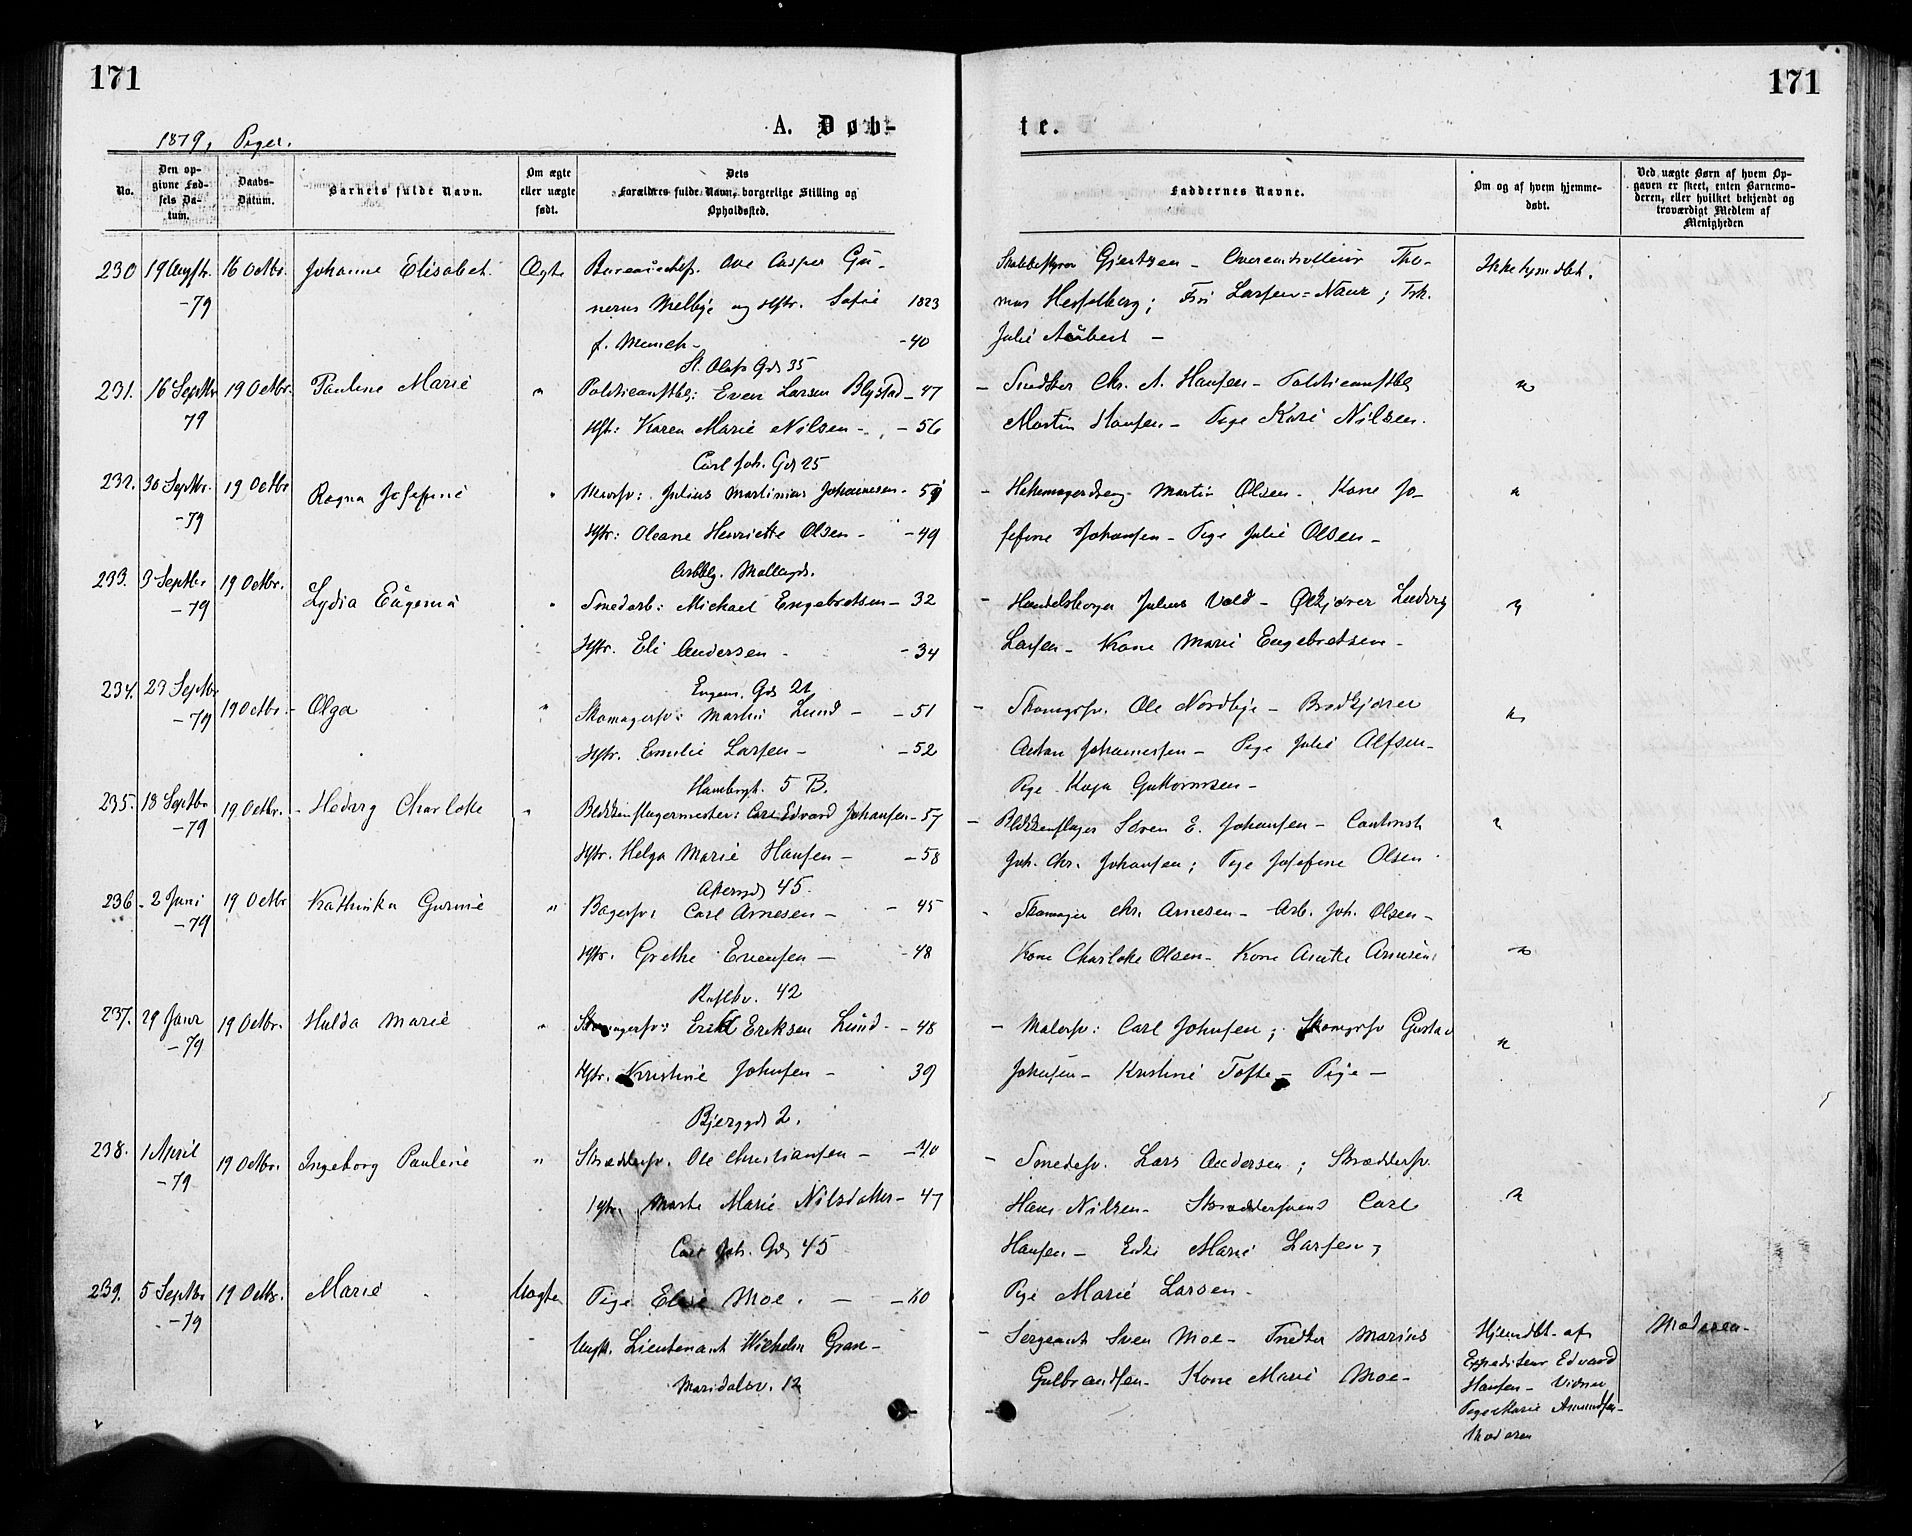 171
171
A. Døb-
te.
1879, Piger.
No.
Den opgivne Fødsels Datum.
Daabs-Datum.
Barnets fulde Navn.
Om ægte eller uægte født.
Dets Forældres fulde Navn, borgerlige Stilling og Opholdssted.
Faddernes Navne.
Om og af hvem hjemmedøbt.
Ved uægte Børn af hvem Opgaven er skeet, enten Barnemoderen, eller hvilket bekjendt og troværdigt Medlem af Menigheden
230 19 Augstr. 16 Octbr. Johanne Elisabet. Ægte Bureauchef. Ove Casper Gu-
-79 nerus Melbye og Hstr. Sofie 1823
f. Munch - -40
St. Olafs Gd 35
Gjertsen - Overcontrolleur Tho-
mas Hesselberg; Larsen
Julie Aubert -
231. 16 Septbr 19 Octbr. Pauline Marie " Politieanstbt: Even Larsen Blystad - 47
79 Hst: Karen Marie Nilsen - - 56
Carl Joh. Gd 25
- Snedker Chr. A. Hansen - Politieanstbt
Martin Hansen - Pige Kari Nilsen.
"
232. 30 Septbr. 19 Octbr Ragna Josefine " Mursv: Julius Martinius Johannesen -
-79 Hstr: Oleane Henriette Olsen - - 49
- Martin Olsen - Kone Jo-
sefine Johansen - Pige Julie Olsen -
"
233. 3 Septbr 19 Octbr. Lydia Eugenie " Smedarb: Michael Engebretsen - 32
-79 Hstr. Eli Andersen - - 34
Engens Gd 21
- Handelsborger Julius Vold - Ølkjører Ludvig
Larsen - Kone Marie Engebretsen -
"
234. 29 Septbr 19 Octbr. - Olga " Skomagersv: Martin Lund - - 51
-79 Hstr. Emilie Larsen - - 52
Hambergt. 5 B.
- Skomgrsv. Ole Nordbye - Brødkjører
Anton Johannesen - Pige Julie Alfsen -
Pige Kaja Guttormsen -
"
235. 18 Septbr 19 Octbr. - Hedvig Charlotte " Blikkenslagermester: Carl Edvard Johansen - 57
-79 Hstr. Helga Marie Hansen - - 58
Akersgd 45.
- Blikkenslager Søren E. Johansen -
Joh. Chr. Johansen; Pige Josefine Olsen
"
236 - 2 Juni 19 Octbr Kathinka Gurine " Bagersv: Carl Arnesen - - 45
-79 Hstr. Grethe Evensen - - 48
42
- Skomager Chr. Arnesen - Arb. Joh. Olsen -
Kone Charlotte Olsen - Kone Anette Arnesen
"
237. 29 Janr 19 Octbr. Hulda Marie " Skomagersv: Erik Eriksen Lund - - 48
-79 Hstr. Kristine Johnsen - 39
Bjerggd 2.
- Malersv: Carl Johnsen; Skomgrsv Gustav
Johnsen - Kristine Tofte - Pige -
"
238. 1 April 19 Octbr. Ingeborg Pauline " Skræddersv. Ole Christiansen - - 40
-79 Hstr. Marte Marie Nilsdatter - 47
Carl Joh. Gd 45
- Smedesv. Lars Andersen; Skræddersv.
Hans Nilsen - Skræddersvend Carl
Hansen - Enke Marie Larsen,
Pige Marie Larsen -
"
239. 5 Septbr 19 Octbr. Marie Uægte Pige Elise Moe. - - 60
-79 Ungk. Lieutenant Wilhelm Gran -
Maridalsv. 12
- Sergeant Sven Moe - Snedker Marius
Gulbrandsen - Kone Marie Moe -
Hjemdbt. af
Expediteur Edvard
Hansen - Vidner
Pige Marie Amundsen -
Moderen
Moderen -